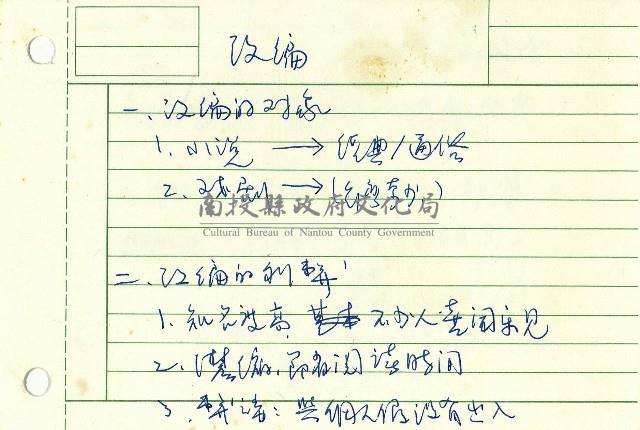 改编
一、改编的对象
1. 小说 → 经典/通俗
2. 戏剧 → (
南投縣政府文化局
Cultural Bureau of Nantou County Government
二、改编的利弊
1. 知名度高, 不少人喜闻乐见
2. 节省阅读时间
3. 弊病: 与个人假设有出入